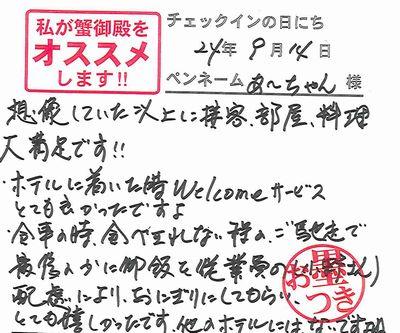 私が蟹御殿を
オススメ
します!!
チェックインの日にち
24年 9月 14日
ペンネーム あ〜ちゃん 様
想像していた以上に接客、部屋、料理
大満足です!!
・ホテルに着いた時Welcomeサービス
とても良かったですよ
・食事の時、食べきれない程の、ご馳走で
最後のかに御飯を従業員の
配慮により、おにぎりにしてもらい、
とても嬉しかったです。他のホテルには
お墨つき